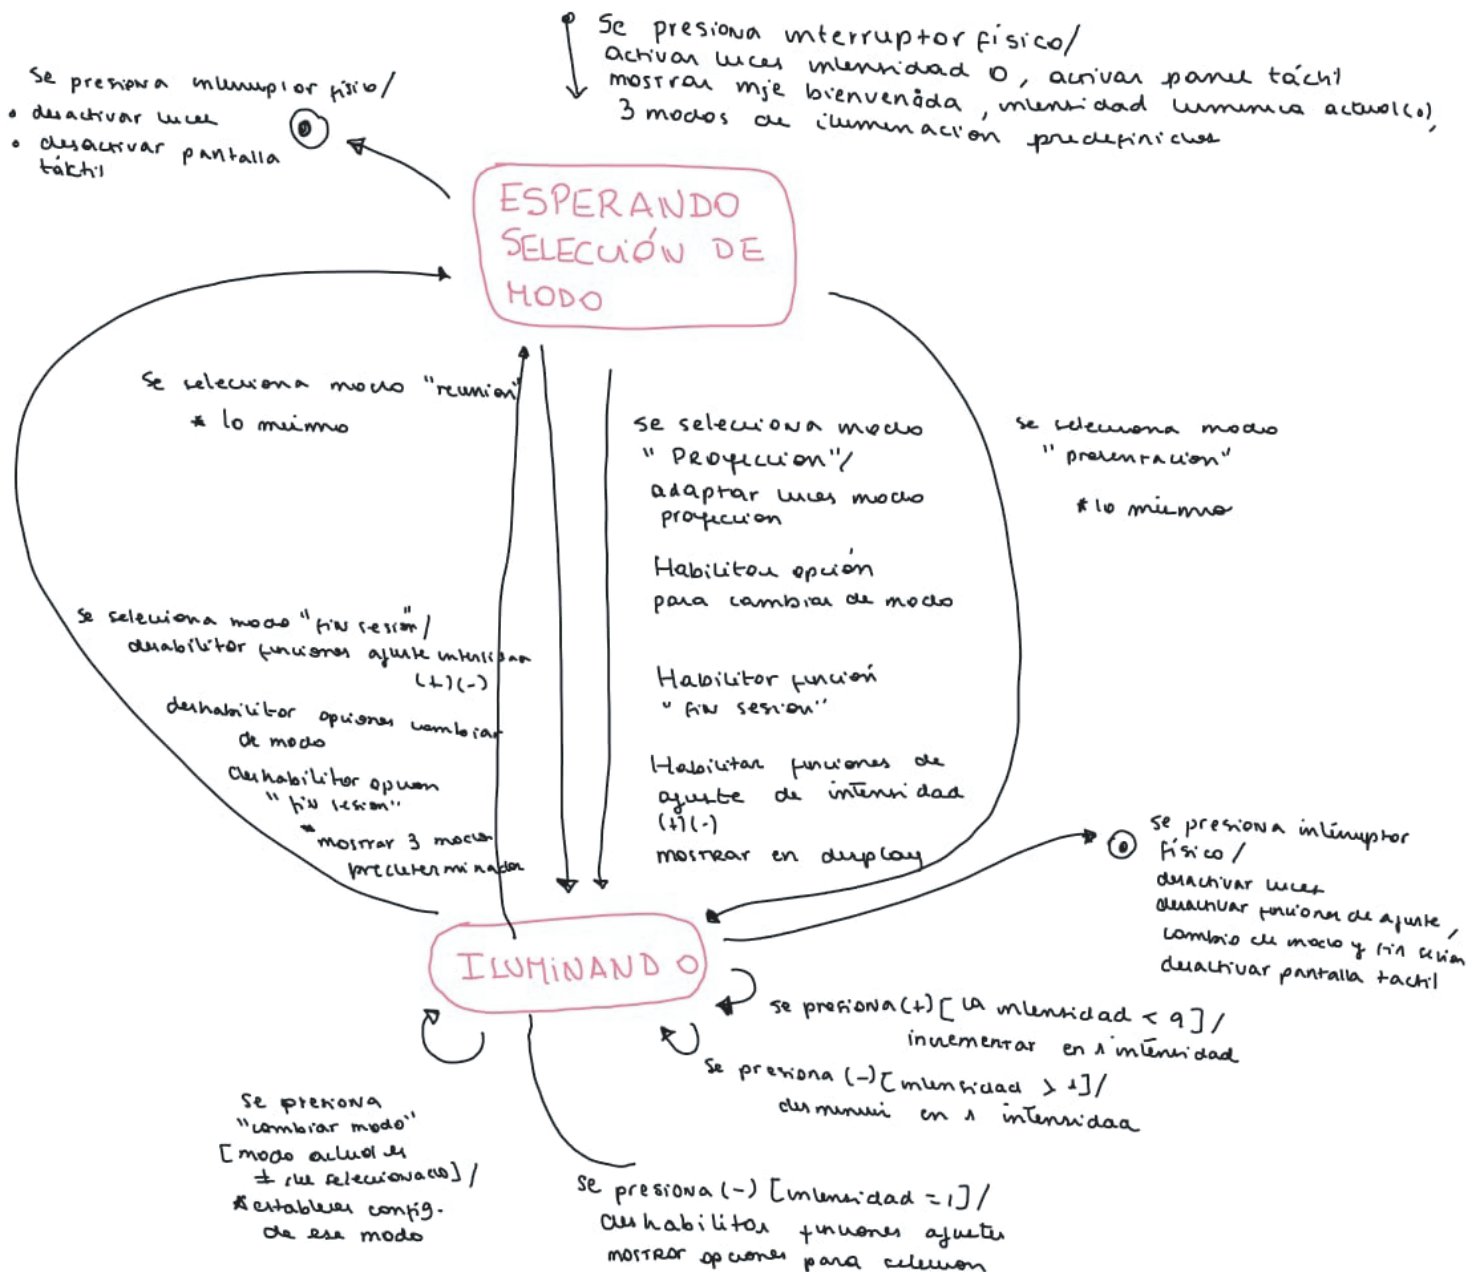 Se presiona interruptor físico/
activar luces intensidad 0, activar panel táctil
mostrar mje bienvenida, intensidad luminica actual(0),
3 modos de iluminación predefinidos
se presiona interruptor físico/
• desactivar luces
• desactivar pantalla
táctil
ESPERANDO
SELECCIÓN DE
MODO
se selecciona modo "reunion"
* lo mismo
se selecciona modo
"Proyeccion"/
adaptar luces modo
proyeccion
Habilitar opción
para cambiar de modo
Habilitar función
"fin sesion"
Habilitar funciones de
ajuste de intensidad
(+)(-)
mostrar en display
se selecciona modo
"presentacion"
* lo mismo
se selecciona modo "fin sesion"/
desabilitar funciones ajuste intensidad
(+)(-)
deshabilitar opciones cambiar
de modo
deshabilitar opcion
"fin sesion"
*mostrar 3 modos
predeterminados
se presiona intérruptor
físico/
desactivar luces
desactivar funciones de ajuste,
cambio de modo y fin sesion
desactivar pantalla tactil
ILUMINANDO
se presiona (+) [la intensidad < 9]/
incrementar en 1 intensidad
se presiona (-) [intensidad > 1]/
disminuir en 1 intensidad
se presiona
"cambiar modo"
[modo actual es
≠ del seleccionado]/
*establecer config.
de ese modo
se presiona (-) [intensidad = 1]/
deshabilitar funciones ajustes
mostrar opciones para seleccion